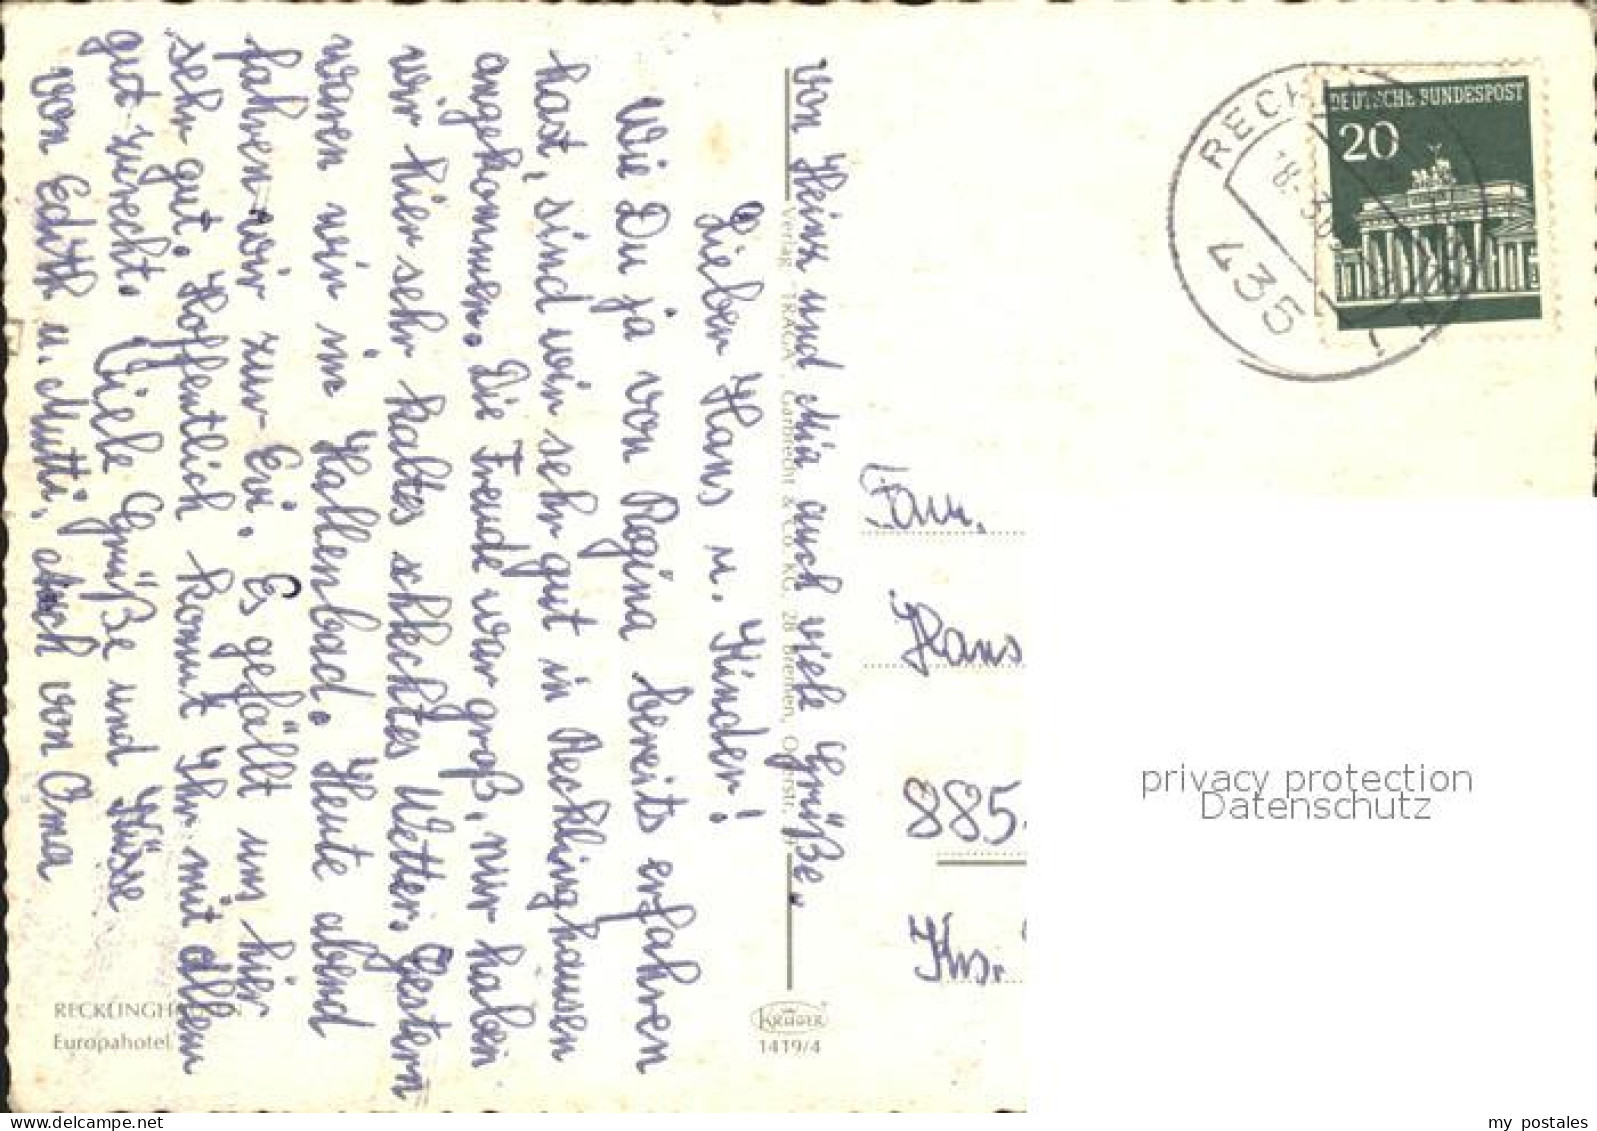 Lieber Hans u. Kinder!
Wie Du ja von Regina bereits erfahren
hast, sind wir sehr gut in Recklinghausen
angekommen. Die Freude war groß, nur haben
wir hier sehr kaltes schlechtes Wetter. Gestern
waren wir im Hallenbad. Heute abend
fahren wir zur Evi. Es gefällt uns hier
sehr gut. Hoffentlich kommt Ihr mit allem
gut zurecht. Viele Grüße und Küsse
von Edith u. Mutti, auch von Oma
von Heinz und Mia auch viele Grüße.
Verlag "TRAGA", Garbrecht & Co. KG, 28 Bremen,
RECKLINGHAUSEN
Europahotel
KRÜGER
1419/4
DEUTSCHE BUNDESPOST
20
RECK
18.-3.
435
1
Fam.
Hans
885
Krs.
privacy protection
Datenschutz
my postales